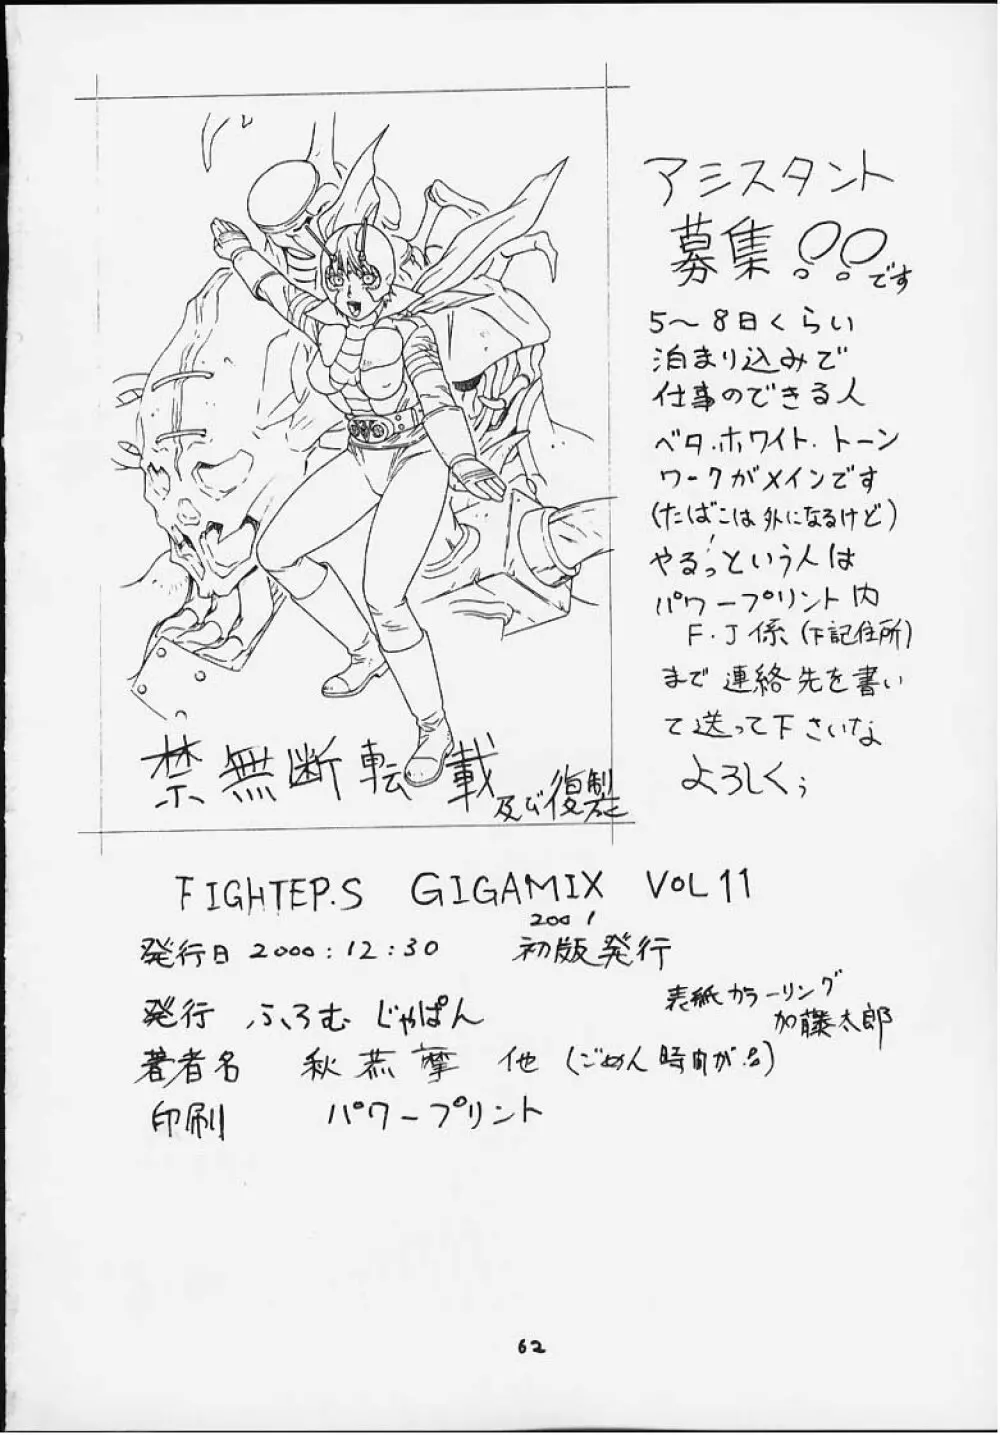 アシスタント
募集!!です
5〜8日くらい
泊まり込みで
仕事のできる人
ベタ.ホワイト.トーン
ワークがメインです
(たばこは外になるけど)
やるっ!という人は
パワープリント内
F.J係(下記住所)
まで連絡先を書い
て送って下さいな
よろしくぅ
禁無断転載
及び復製
FIGHTEP.S GIGAMIX VOL 11
発行日 2000:12:30 2001 初版発行
表紙カラーリング
加藤太郎
発行 ふろむじゃぱん
著者名 秋恭摩 他 (ごめん時間が!!)
印刷 パワープリント
62